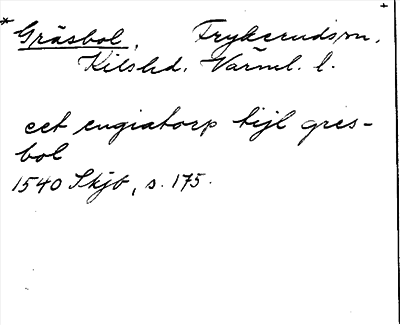 * Gräsbol, Frykeruds sn.
Kils hd. Värml. l.
eet engiatorp tijl gres-
bol
1540 Skjb, s. 175.